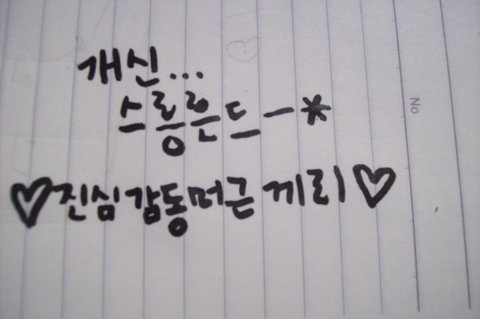 개신...
스릉흔드-*
♡진심감동머근 끼리♡
No